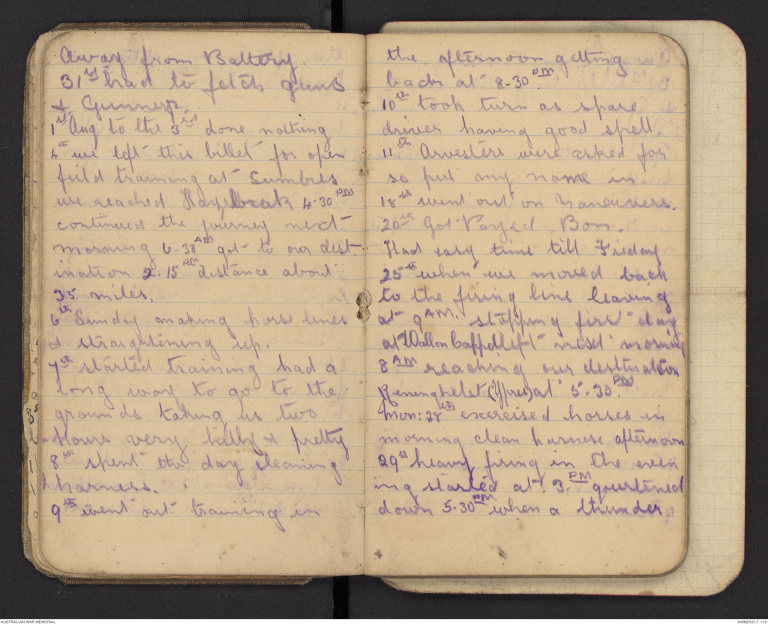 Away from Battery.
31st had to fetch guns
& Gunners.
1st Aug to the 3rd done nothing
4th we left this billet for open
field training at Lumbres
we reached Hazebrook 4.30 PM
continued the journey next
morning 6.30 AM got to our dest-
ination 2.15 PM distance about
35 miles.
6th Sunday making horse lines
& straightining up.
7th started training had a
long way to go to the
grounds taking us two
hours very hilly & pretty
8th spent the day cleaning
harness.
9th went out training in
the afternoon getting
back at 8-30 PM
10th took turn as spare
driver having good spell.
11th Arvesters were asked for
so put my name in
18th went out on maneuvers.
20th Got Payed Bon.
Had easy time till Friday
25th when we moved back
to the firing line leaving
at 9 AM. stopping first day
at Wallon Cappel left next morning
8 AM reaching our destination
Reninghelst (Ypres) at 5.30 PM
Mon: 28th exercised horses in
morning clean harness afternoon
29th heavy firing in the even
ing started at 3. PM
down 5.30 PM when a thunder
AUSTRALIAN WAR MEMORIAL
AWM2020.7.119